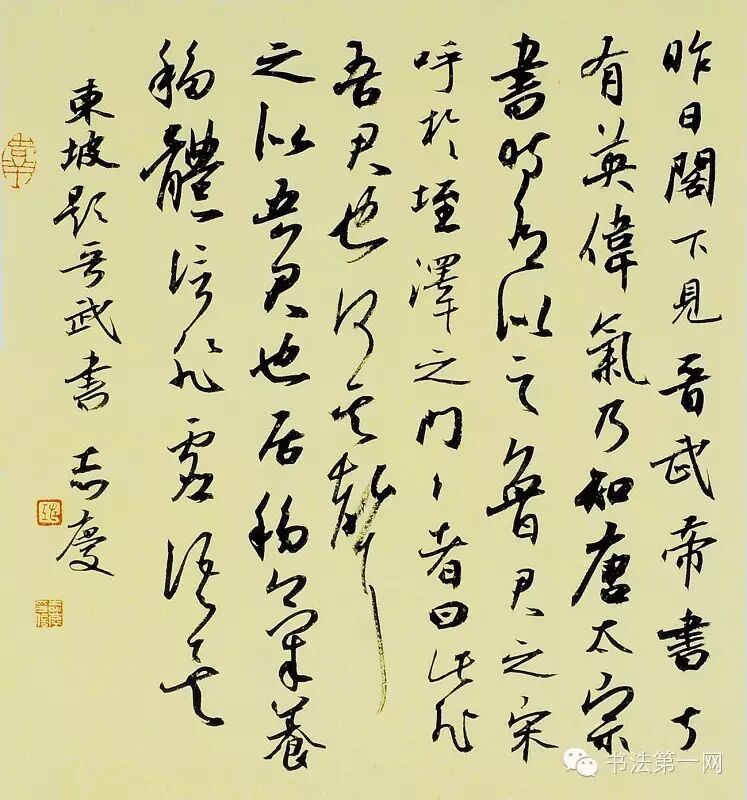 昨日閣下見晉武帝書甚
有英偉氣乃知唐太宗
書時有似之魯君之宋
呼於垤澤之門〻者曰此非
吾君也何其聲
之似吾君也居移氣養
移體信非虛語矣
東坡題晉武書 志慶
书法第一网